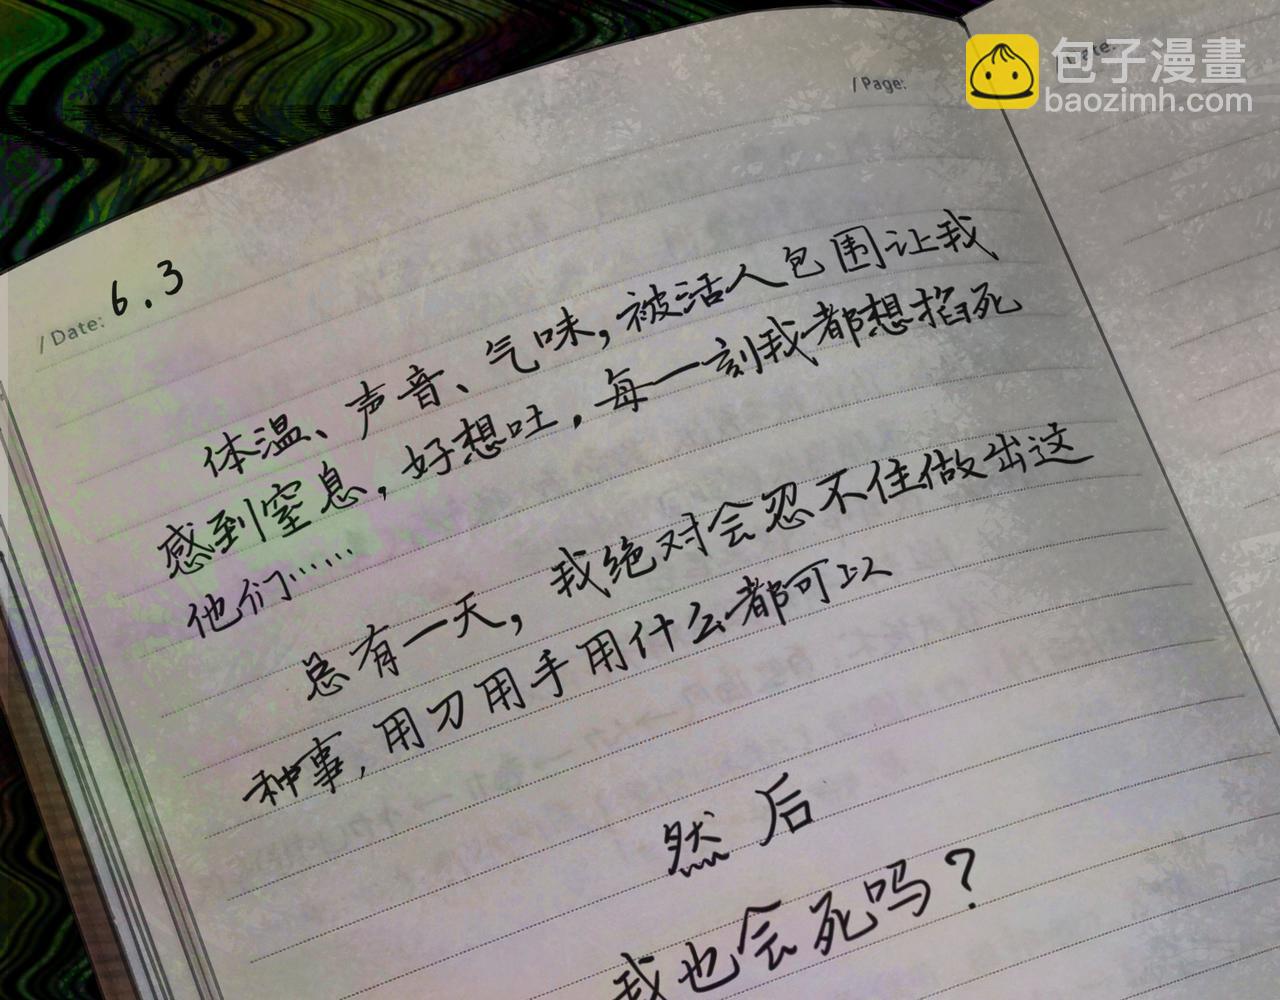 包子漫畫
baozimh.com
/ Page:
/ Date: 6.3
体温、声音、气味，被活人包围让我
感到窒息，好想吐，每一刻我都想掐死
他们……
总有一天，我绝对会忍不住做出这
种事，用刀用手用什么都可以
然后
我也会死吗？